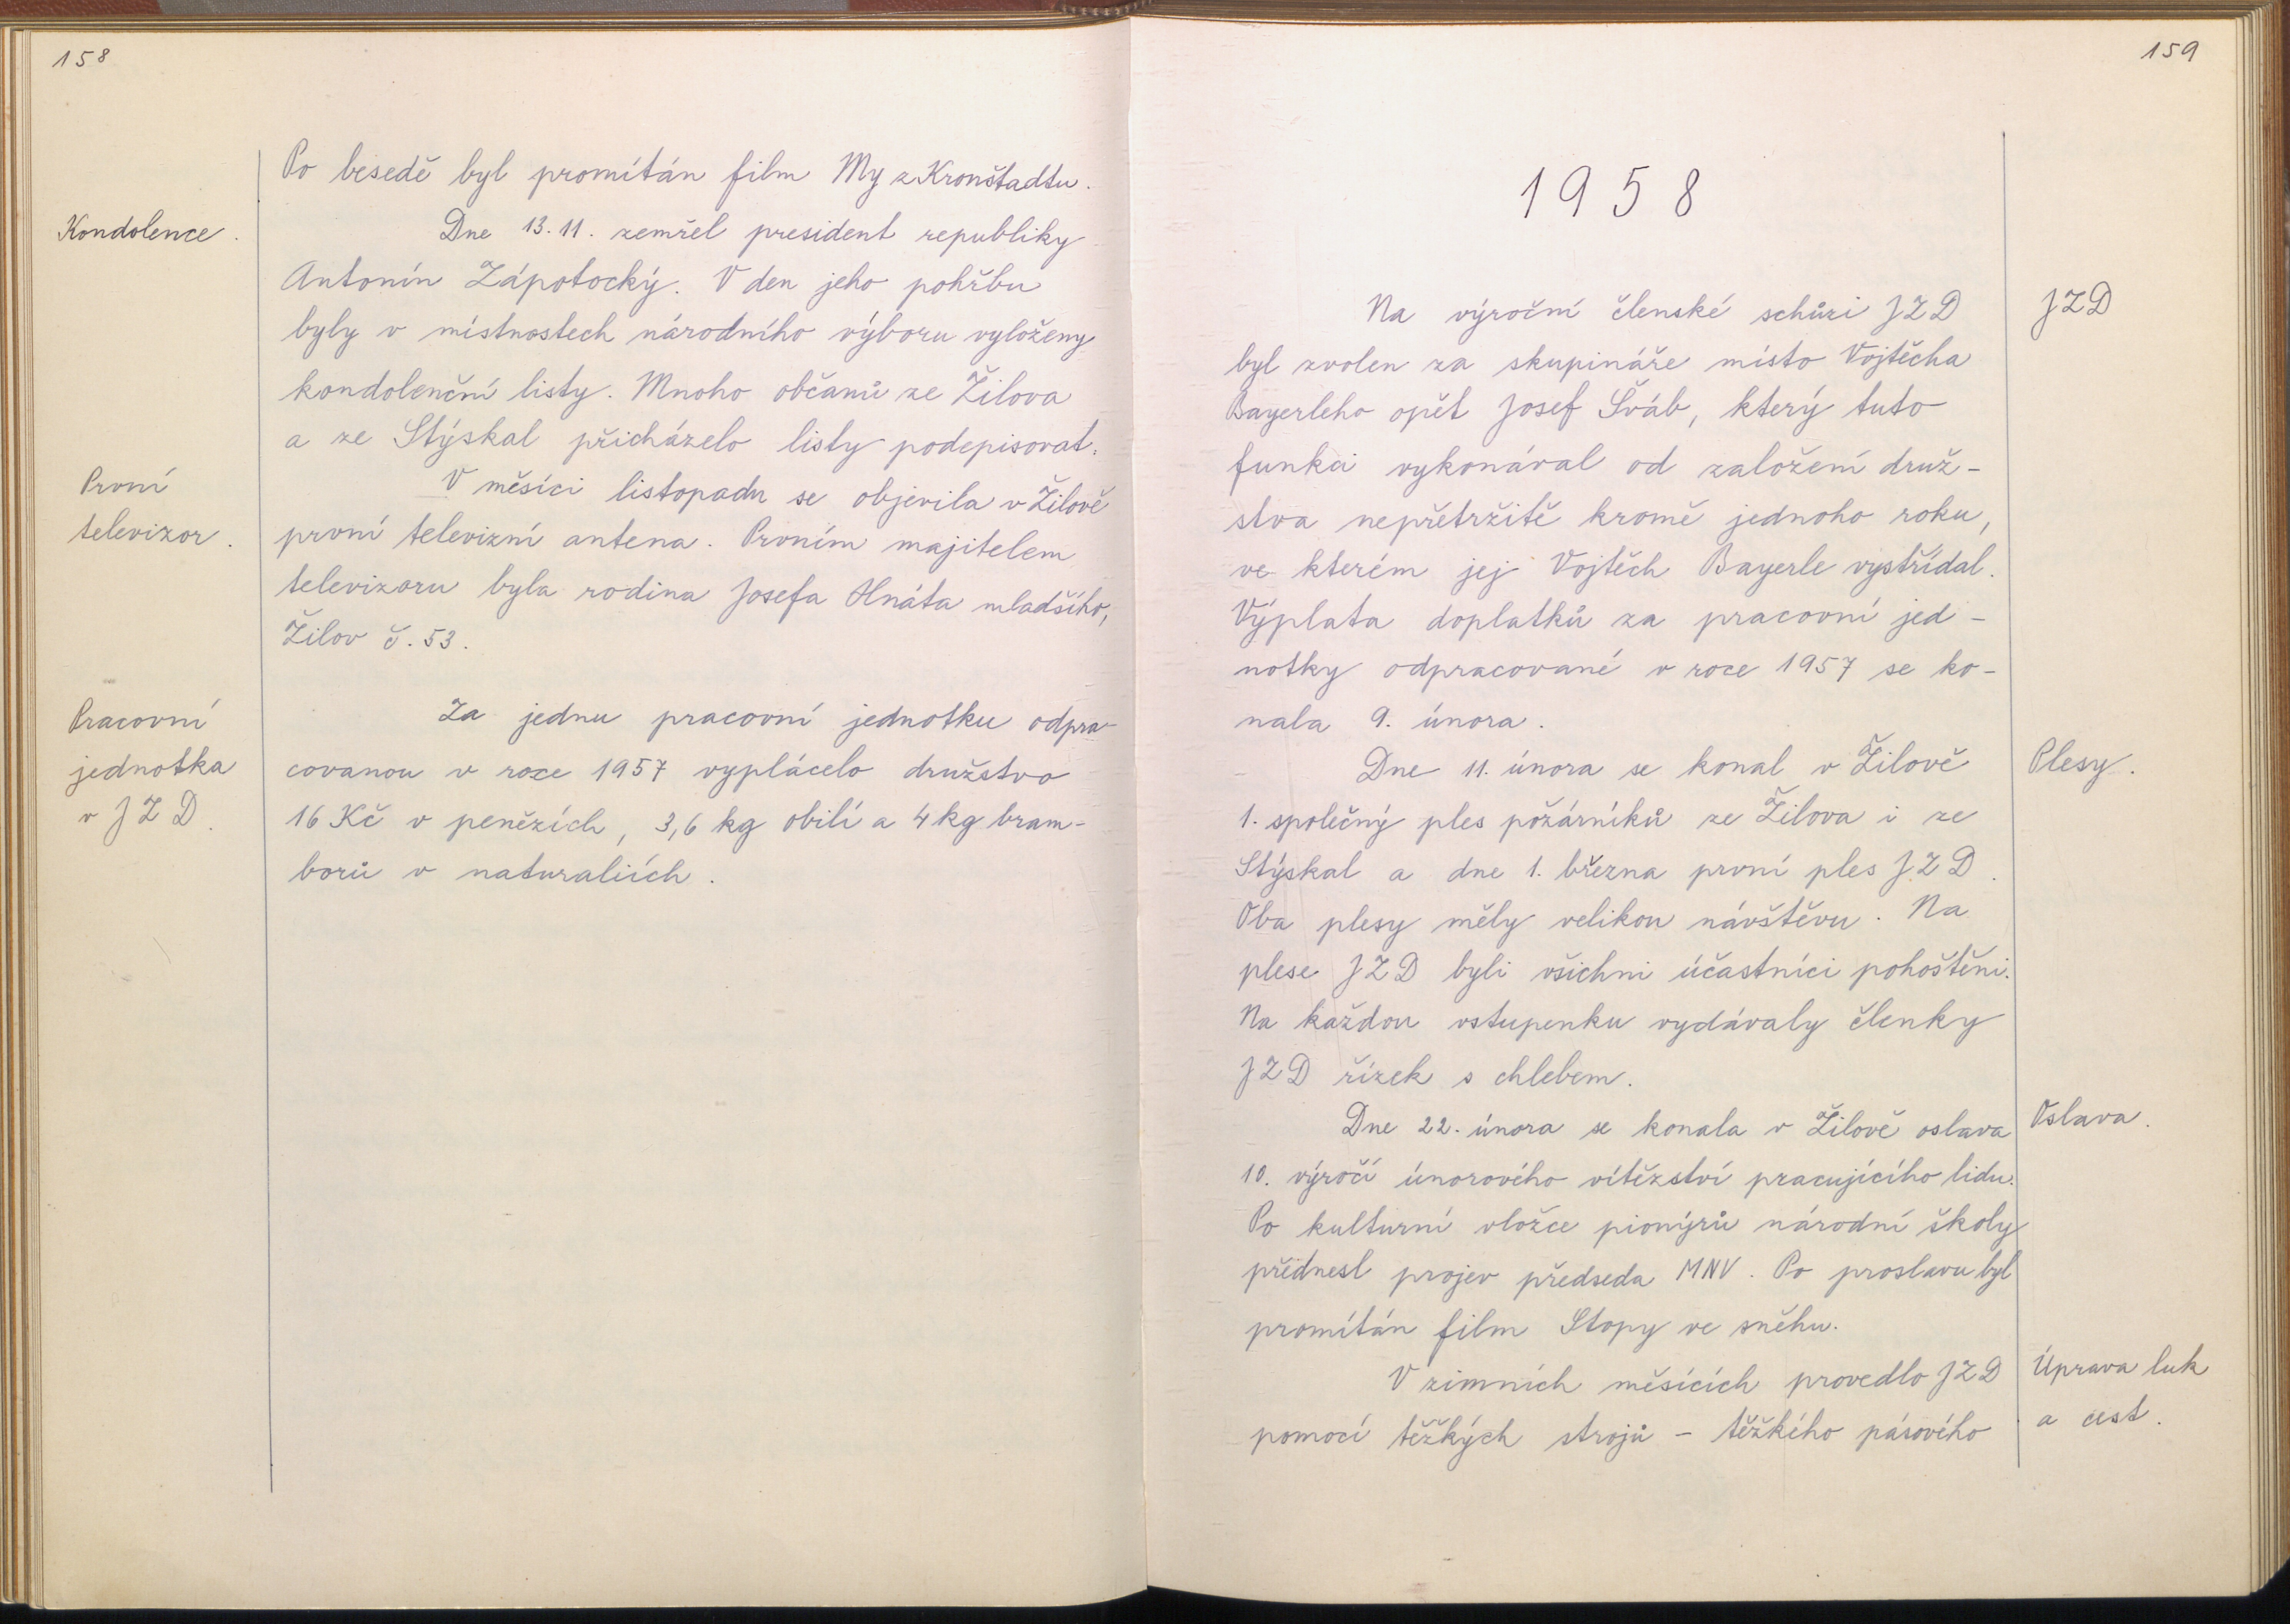 158
Po besedě byl promítán film My z Kronštadtu.
Kondolence.
Dne 13. 11. zemřel president republiky
Antonín Zápotocký. V den jeho pohřbu
byly v místnostech národního výboru vyloženy
kondolenční listy. Mnoho občanů ze Žilova
a ze Stýskal přicházelo listy podepisovat.
První
televizor.
V měsíci listopadu se objevila v Žilově
první televizní antena. Prvním majitelem
televizoru byla rodina Josefa Hnáta mladšího,
Žilov č. 53.
Pracovní
jednotka
v JZD.
Za jednu pracovní jednotku odpra-
covanou v roce 1957 vyplácelo družstvo
16 Kč v penězích, 3,6 kg obilí a 4 kg bram-
borů v naturaliích.
159
1958
JZD
Na výroční členské schůzi JZD
byl zvolen za skupináře místo Vojtěcha
Bayerleho opět Josef Šváb, který tuto
funkci vykonával od založení druž-
stva nepřetržitě kromě jednoho roku,
ve kterém jej Vojtěch Bayerle vystřídal.
Výplata doplatků za pracovní jed-
notky odpracované v roce 1957 se ko-
nala 9. února.
Plesy.
Dne 11. února se konal v Žilově
1. společný ples požárníků ze Žilova i ze
Stýskal a dne 1. března první ples JZD.
Oba plesy měly velikou návštěvu. Na
plese JZD byli všichni účastníci pohoštěni.
Na každou vstupenku vydávaly členky
JZD řízek s chlebem.
Oslava.
Dne 22. února se konala v Žilově oslava
10. výročí únorového vítězství pracujícího lidu.
Po kulturní vložce pionýrů národní školy
přednesl projev předseda MNV. Po proslavu byl
promítán film Stopy ve sněhu.
Úprava luk
a cest.
V zimních měsících provedlo JZD
pomocí těžkých strojů - těžkého pásového